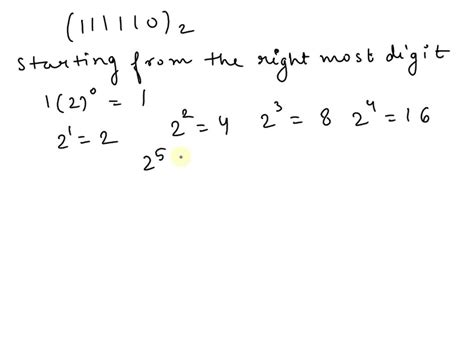 (111110)2
starting from the right most digit
1(2)⁰ = 1
2¹ = 2 2² = 4 2³ = 8 2⁴ = 16
2⁵